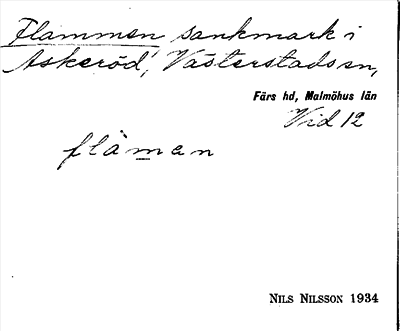 Flammen sankmark i
Askeröd, Västerstads sn,
Färs hd, Malmöhus län
Vid 12
flàman
NILS NILSSON 1934